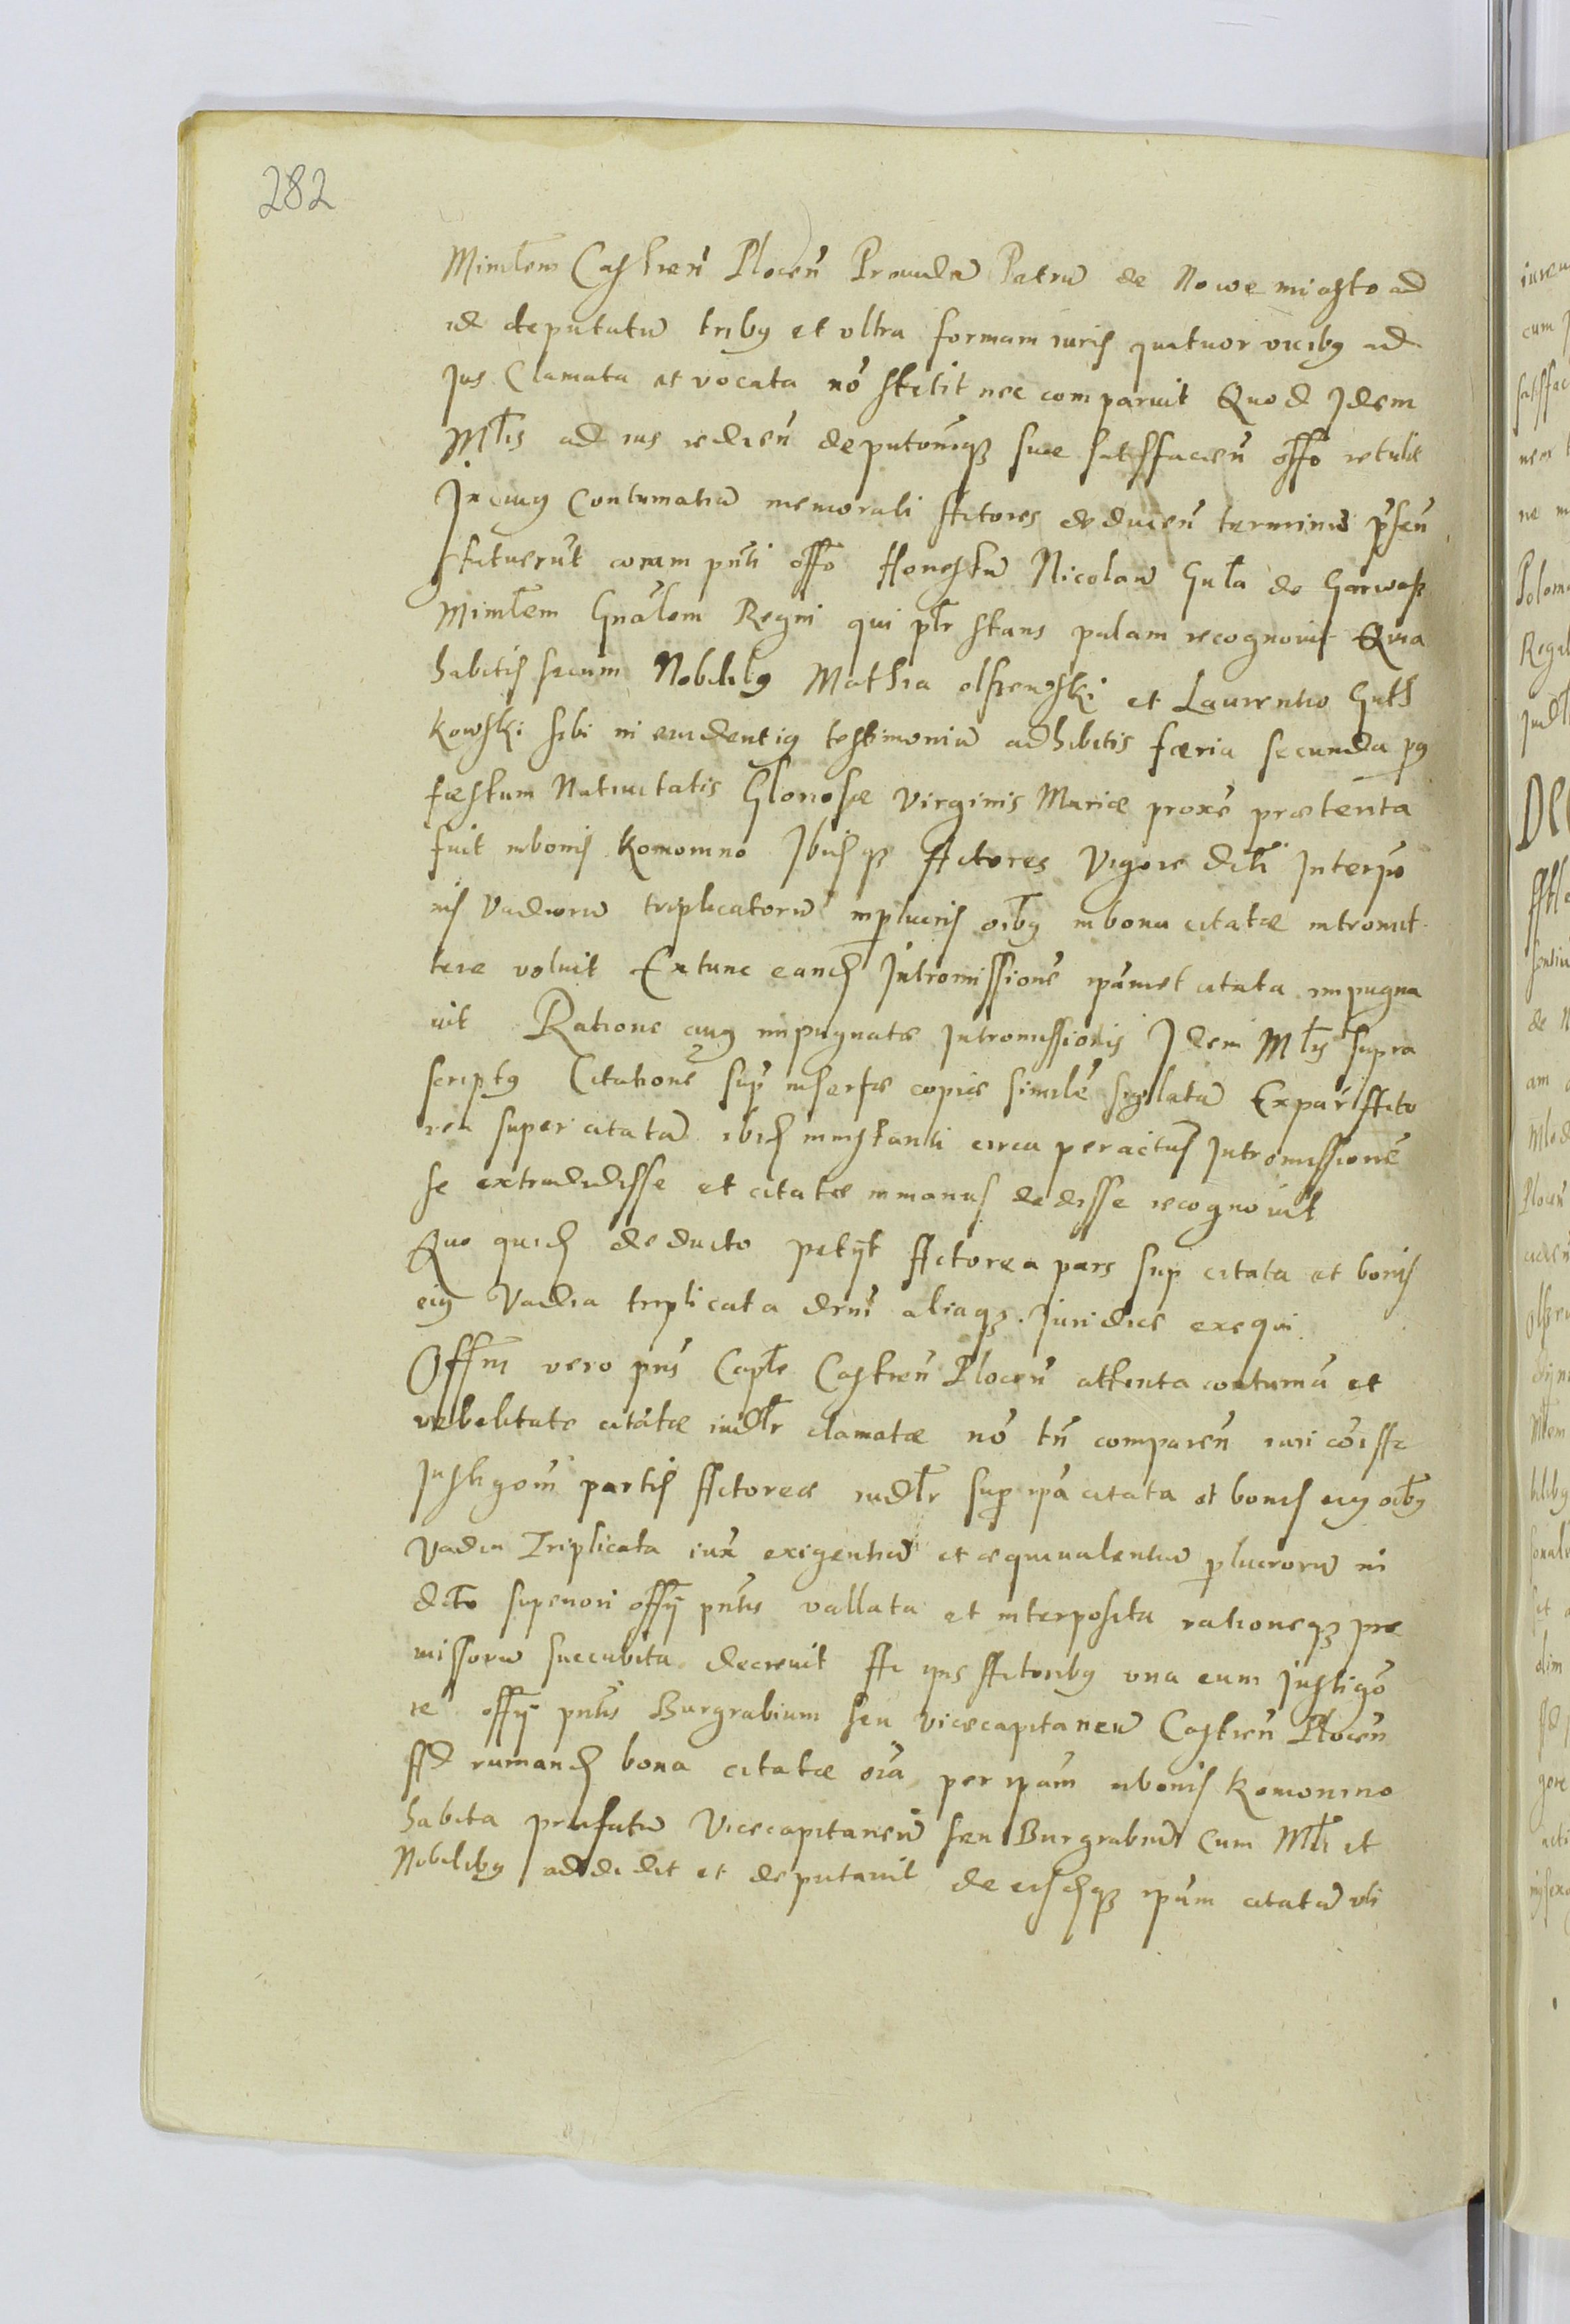 282
Minrlem Castren Plocen Prouidũ Petrũ de Nowe miasto ad
id deputatũ tribq et vltra formam iuris quatuor vicibq ad
Jus Clamata et vocata nõ stetit nec comparuit Quod Jdem
Mlis ad ius redien deputõniqз suæ satisfacien offo retulit
Jn cuiq Contumatiã memorati Actores deducen terminũ p̃sen
statuerũt coram pñti offo Honestũ Nicolaũ Guła de Garwaß
Minrlem Gnãlem Regni qui pltr stans palam recognouit Quia
habitis secum Nobilibq Mathia olszewski et Laurentio Guth
kowski sibi in euidentiq testimoniũ adhibitis færia secunda pq
fæstum Natiuitatis Gloriosæ Virginis Mariæ proxẽ præterita
fuit in bonis Komonino Jbidз qз Actores Vigore dcti Interpo
nis Vadiorũ triplicatorũ in plucris oibq in bona citatæ intromit
tere voluit Extunc eandз Jntromissionẽ ipãmet citata impugna
uit Ratione cuiq impugnatæ Jntromissionis Jdem Mlis supra
scriptq Citationẽ sup insertæ copiæ similẽ sigilatã Ex par Acto
rea super citatã ibidз in instanti circa peractaз Jntromissionẽ
se extradidisse et citatæ in manus dedisse recognouit
Quo quidз deducto petijt Actorea pars sup citata et bonis
eiq Vadia triplicata dcrni aliaqз Juridice exequi
Offm vero pñs Capłe Castren Plocen attenta contumã et
rebelitate citatæ iudłr clamatæ nõ tñ comparen iuri cõisse
Jnstigõm partis Actoreæ iudłr sup ipã citata et bonis eiq oibq
Vadia Triplicata iux exigentiã et æquiualentiã plucrorũ in
dcto superiori offij pñtis vallata et interposita rationeqз præ
missorũ succubita decreuit Ac ipis Actoribq vna cum Jnstigo
re offij pñtis Burgrabium seu vicecapitaneũ Castren Plocen
Ad rumandз bona citatæ oĩa per ipãm in bonis Komonino
habita præfatũ Vicecapitaneũ seu Burgrabiũ Cum Mli et
Nobilibq addidit et deputauit de eisdзqз ipãm citatã vti